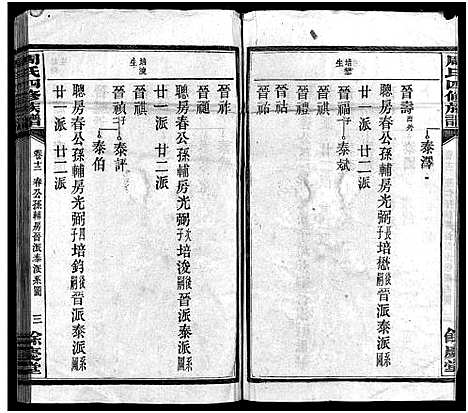 周氏四修族譜
餘慶堂
晉壽
泰澤
聰房春公孫輔房光弼長子培懋後嗣晉派泰派系圖
廿一派 廿二派
培懋生
晉福子 泰斌
晉祜
晉祐
晉祚
晉禠
聰房春公孫輔房光弼次子培浚後嗣晉派泰派系圖
廿一派 廿二派
培浚生
晉祺
晉禎子 泰評
泰伯
聰房春公孫輔房光弼四子培鈞後嗣晉派泰派系圖
廿一派 廿二派
周氏四修族譜
卷十二 春公孫輔房晉派泰派系圖
三
餘慶堂